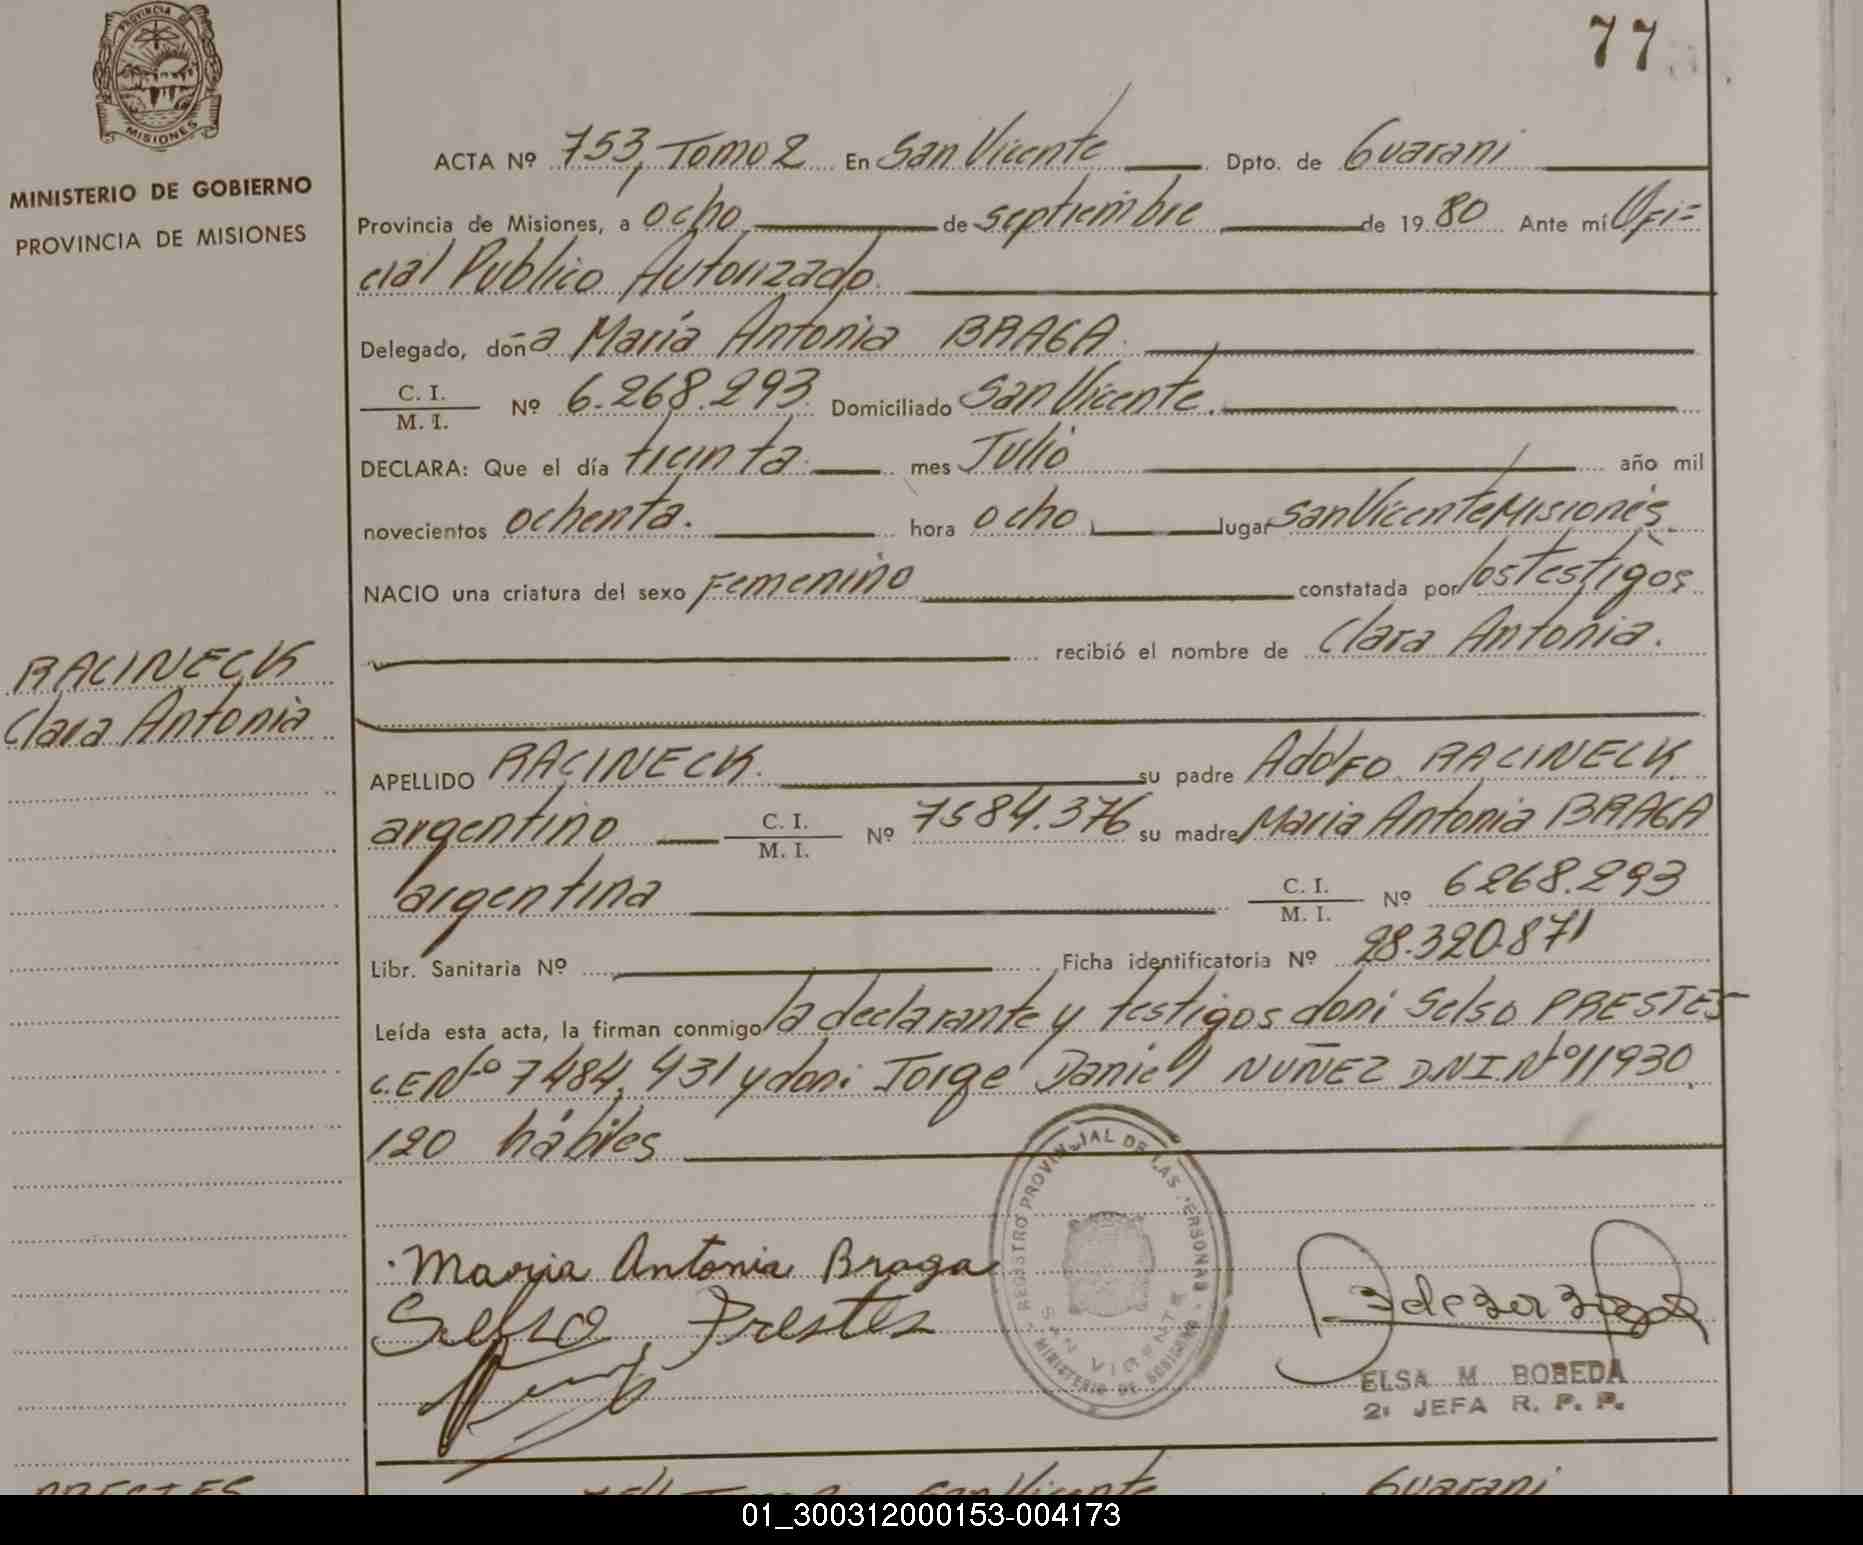 77
PROVINCIA DE
MISIONES
MINISTERIO DE GOBIERNO
PROVINCIA DE MISIONES
ACTA Nº 753, Tomo 2 En San Vicente Dpto. de Guarani
Provincia de Misiones, a ocho de septiembre de 1980 Ante mí Ofi=
cial Publico Autorizado
Delegado, doña María Antonia BRAGA.
C. I.
M. I. Nº 6.268.293 Domiciliado San Vicente.
DECLARA: Que el día treinta mes Julio año mil
novecientos ochenta. hora ocho lugar San Vicente Misiones
NACIO una criatura del sexo Femenino constatada por los testigos
recibió el nombre de Clara Antonia.
RACINECK
Clara Antonia
APELLIDO RACINECK. su padre Adolfo RACINECK
argentino C. I. M. I. Nº 7584.376 su madre Maria Antonia BRAGA
argentina C. I. M. I. Nº 6268.293
Libr. Sanitaria Nº Ficha identificatoria Nº 28.320.871
Leída esta acta, la firman conmigo la declarante y testigos don: Selso PRESTES
C.E Nº 7484,431 y don: Jorge Daniel NUÑEZ D.N.I. Nº 11930
120 hábiles
REGISTRO PROVINCIAL DE LAS PERSONAS
SAN VICENTE
MINISTERIO DE GOBIERNO
Maria Antonia Braga
Selso Prestes
ELSA M. BOBEDA
2ª JEFA R. P. P.
PRESTES
754 Tomo 2 San Vicente Guarani
01_300312000153-004173